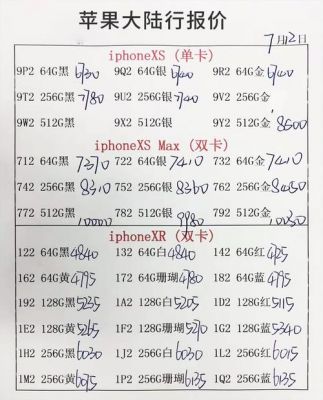 苹果大陆行报价
7月12日
iphoneXS (单卡)
9P2 64G黑 6730 9Q2 64G银 6740 9R2 64G金 6740
9T2 256G黑 7780 9U2 256G银 7740 9V2 256G金
9W2 512G黑 9X2 512G银 9Y2 512G金 8600
iphoneXS Max (双卡)
712 64G黑 7370 722 64G银 7410 732 64G金 7410
742 256G黑 8310 752 256G银 8360 762 256G金 8430
772 512G黑 10000 782 512G银 9980 792 512G金 10030
iphoneXR (双卡)
122 64G黑 4840 132 64G白 4840 142 64G红 4725
162 64G黄 4795 172 64G珊瑚 4780 182 64G蓝 4795
192 128G黑 5235 1A2 128G白 5205 1D2 128G红 5115
1E2 128G黄 5265 1F2 128G珊瑚 5270 1G2 128G蓝 5340
1H2 256G黑 6030 1J2 256G白 6030 1L2 256G红 6015
1M2 256G黄 6075 1P2 256G珊瑚 6135 1Q2 256G蓝 6135